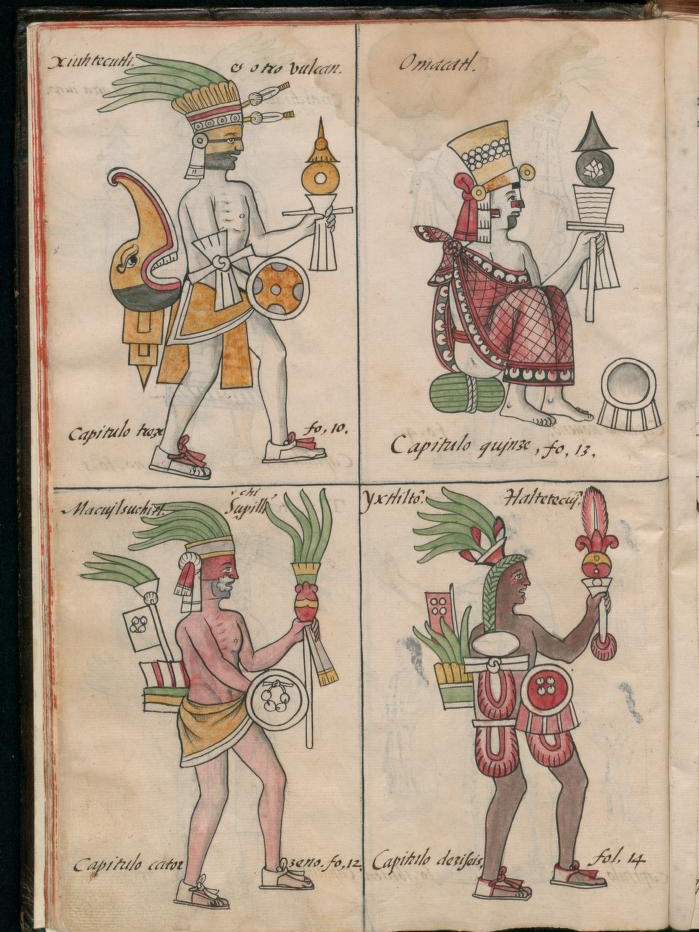 Xiuhtecutli. es otro vulcan.
Capitulo treze fo, 10.
Omacatl.
Capitulo quinze, fo, 13.
Macuilsuchitl
chi
Capitulo cator zeno. fo, 12.
Yxtlilto. Haltetecuj.
Capitulo deziseis, fol, 14